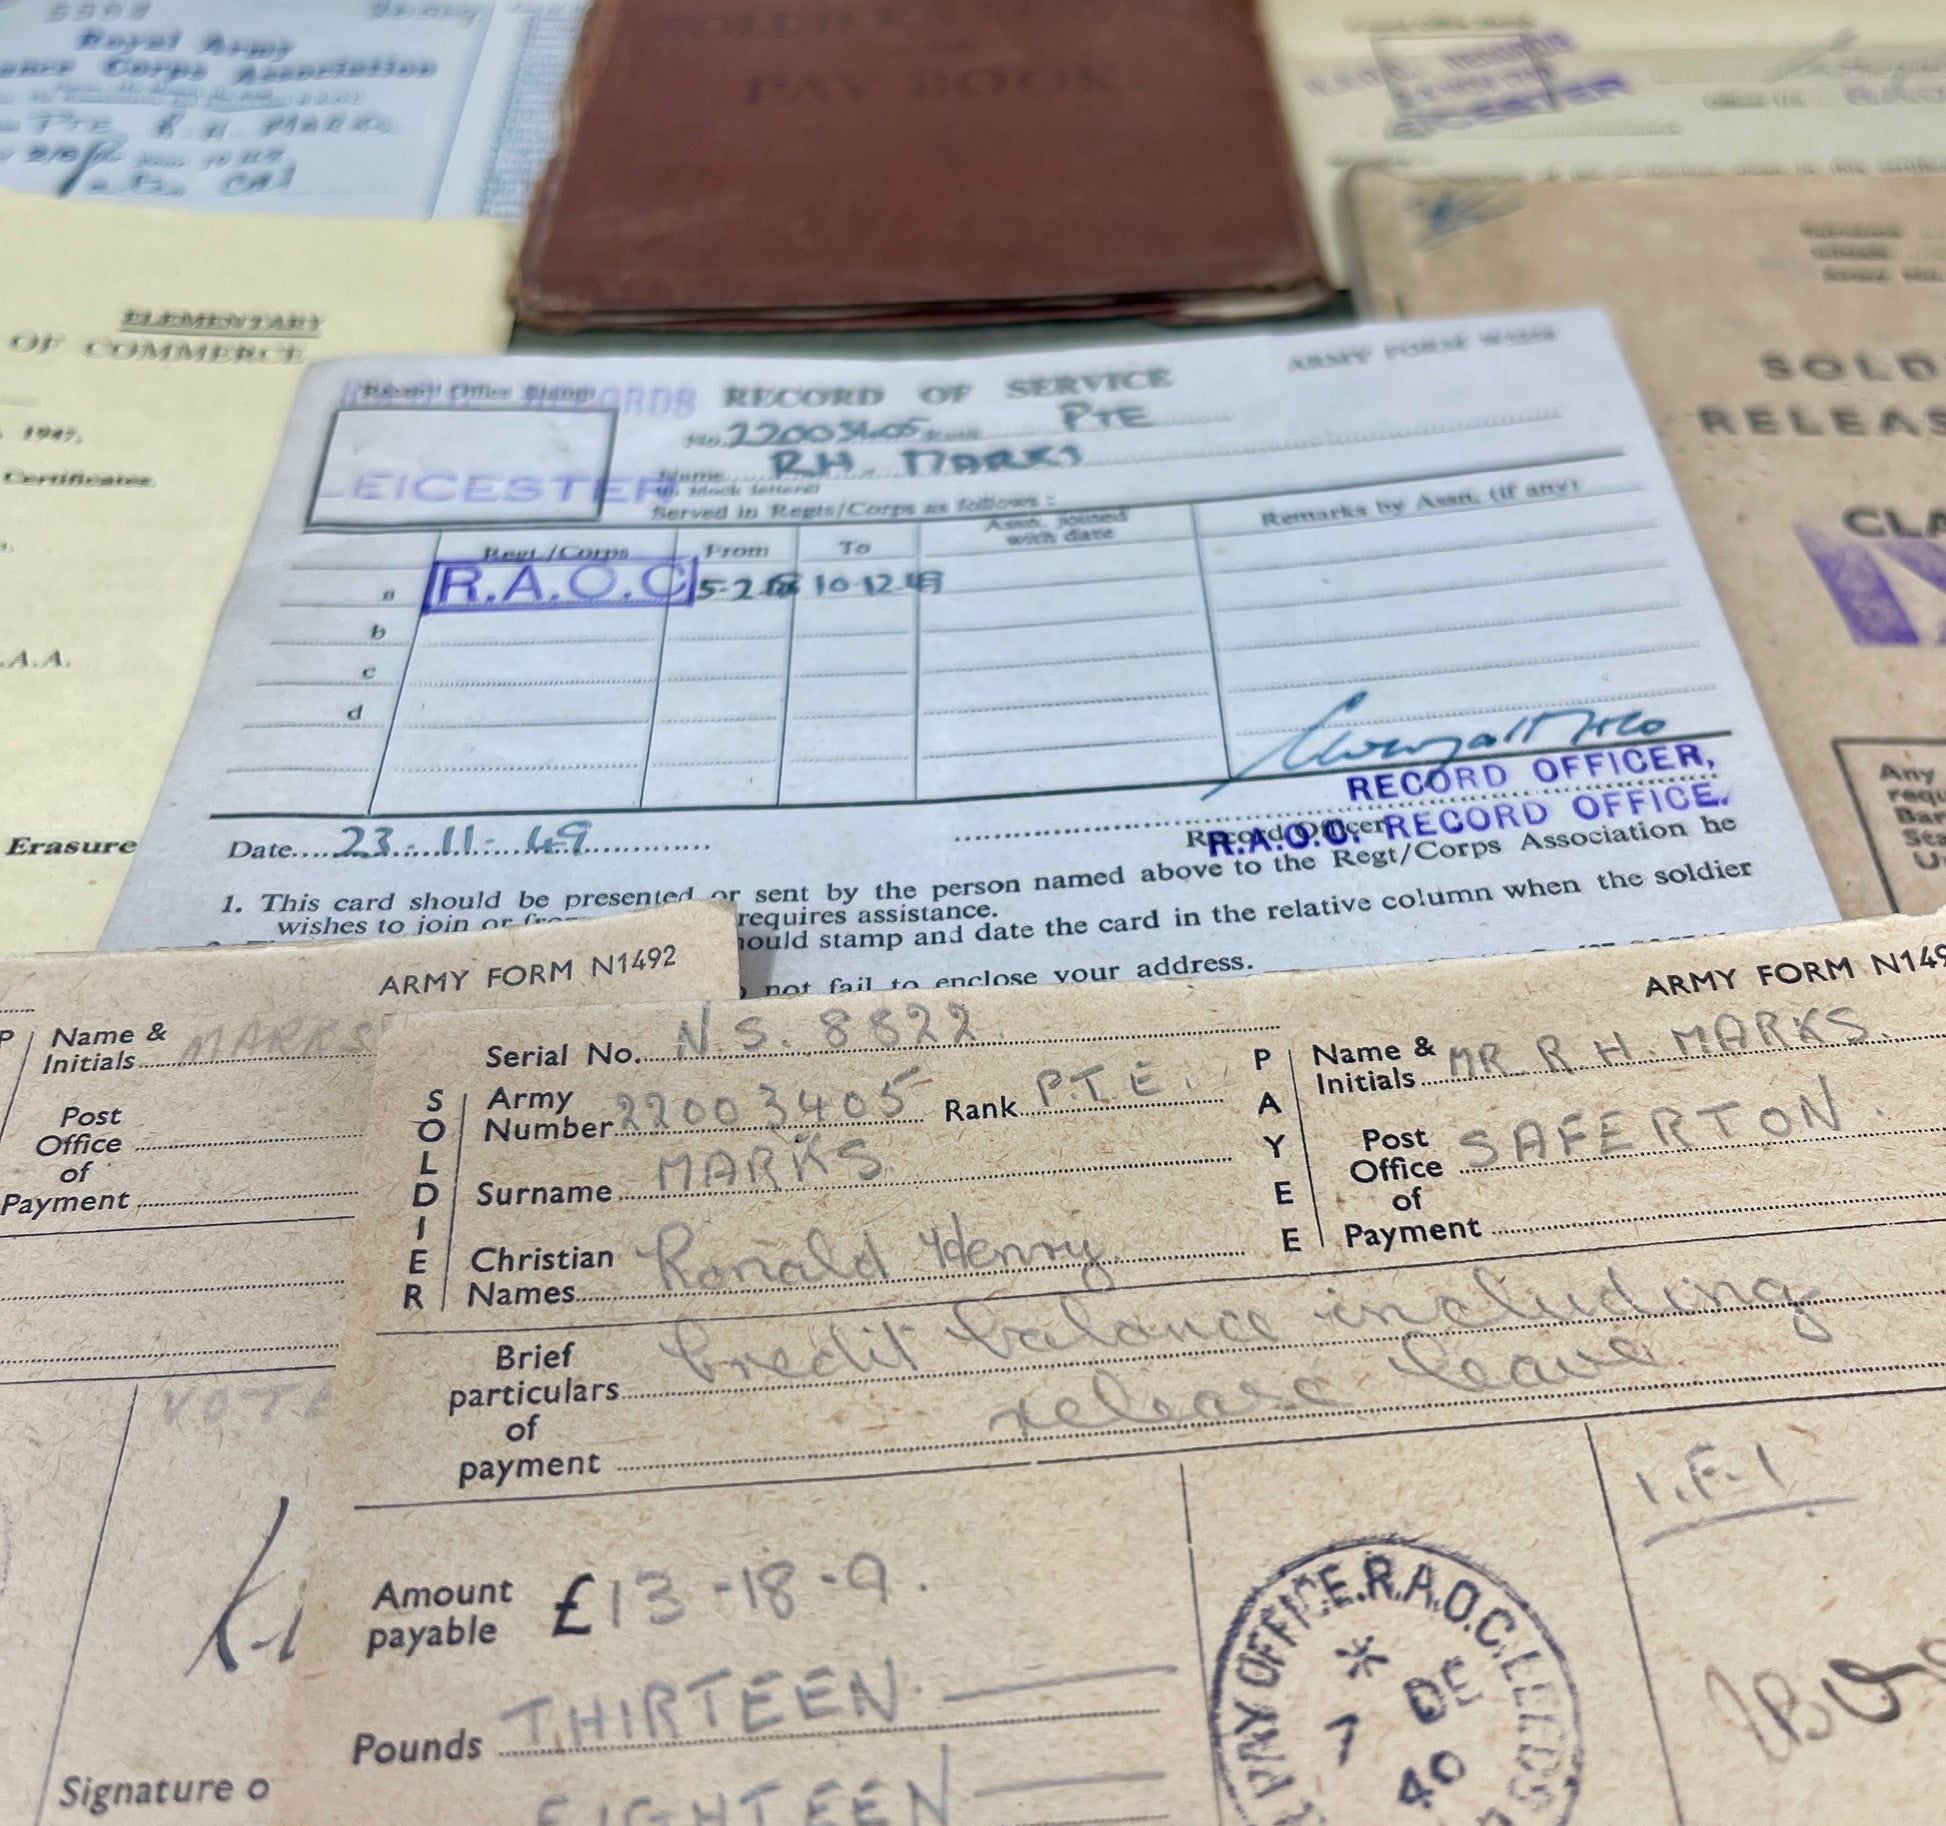 Royal Army
Corps Association
PTE R. H. MARKS
PAY BOOK
LEICESTER
ELEMENTARY
OF COMMERCE
1947,
Certificates.
A.A.
Erasure
SOLD
RELEAS
CLA
Any
requ
Bar
Sta
U
ARMY FORM
Record Office Stamp
RECORDS
RECORD OF SERVICE
LEICESTER
No. 22003405 Rank PTE
Name RH. MARKS
(in block letters)
Served in Regts/Corps as follows :
Regt./Corps From To Assn. joined with date Remarks by Assn. (if any)
a R.A.O.C 5-2-48 10-12-49
b
c
d
RECORD OFFICER,
R.A.O.C. RECORD OFFICE.
Record Officer
Date 23-11-49
1. This card should be presented or sent by the person named above to the Regt/Corps Association he
wishes to join or from requires assistance.
ould stamp and date the card in the relative column when the soldier
not fail to enclose your address.
ARMY FORM N1492
P
Name & Initials MARKS
Post Office of Payment
Signature o
ARMY FORM N149
SOLDIER
Serial No. N.S. 8822
Army Number 22003405 Rank P.T.E.
Surname MARKS
Christian Names Ronald Henry
PAYEE
Name & Initials MR R H. MARKS.
Post Office of Payment SAFERTON.
Brief particulars of payment Credit balance including
release leave.
Amount payable £13-18-9.
Pounds THIRTEEN
EIGHTEEN
PAY OFFICE.R.A.O.C. LEEDS
7 DE
I.F.1